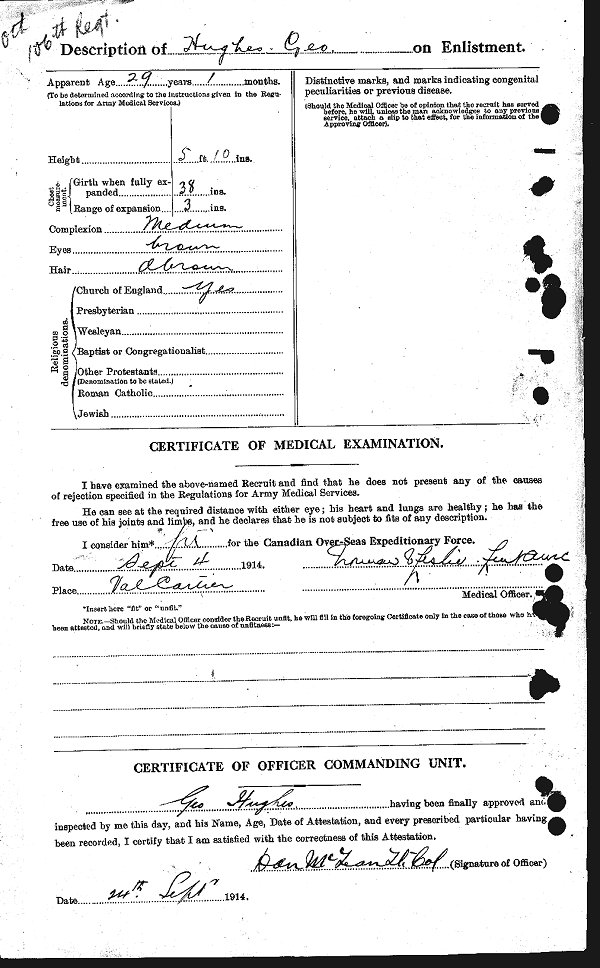 106th Regt.
Description of Hughes Geo. on Enlistment.
Apparent Age 29 years 1 months.
(To be determined according to the instructions given in the Regu-
lations for Army Medical Services.)
Height 5 ft. 10 ins.
Chest measure-
ment.
Girth when fully ex-
panded 38 ins.
Range of expansion 3 ins.
Complexion Medium
Eyes brown
Hair
Religious
denominations.
Church of England Yes
Presbyterian
Wesleyan
Baptist or Congregationalist
Other Protestants
(Denomination to be stated.)
Roman Catholic
Jewish
Distinctive marks, and marks indicating congenital
peculiarities or previous disease.
(Should the Medical Officer be of opinion that the recruit has served
before, he will, unless the man acknowledges to any previous
service, attach a slip to that effect, for the information of the
Approving Officer).
CERTIFICATE OF MEDICAL EXAMINATION.
I have examined the above-named Recruit and find that he does not present any of the causes
of rejection specified in the Regulations for Army Medical Services.
He can see at the required distance with either eye; his heart and lungs are healthy; he has the
free use of his joints and limbs, and he declares that he is not subject to fits of any description.
I consider him* fit for the Canadian Over-Seas Expeditionary Force.
Date Sept 4 1914.
Place Val Cartier
Medical Officer.
*Insert here "fit" or "unfit."
NOTE.—Should the Medical Officer consider the Recruit unfit, he will fill in the foregoing Certificate only in the case of those who
been attested, and will briefly state below the cause of unfitness:—
CERTIFICATE OF OFFICER COMMANDING UNIT.
Geo Hughes having been finally approved and
inspected by me this day, and his Name, Age, Date of Attestation, and every prescribed particular having
been recorded, I certify that I am satisfied with the correctness of this Attestation.
(Signature of Officer)
Date 24th Sept 1914.